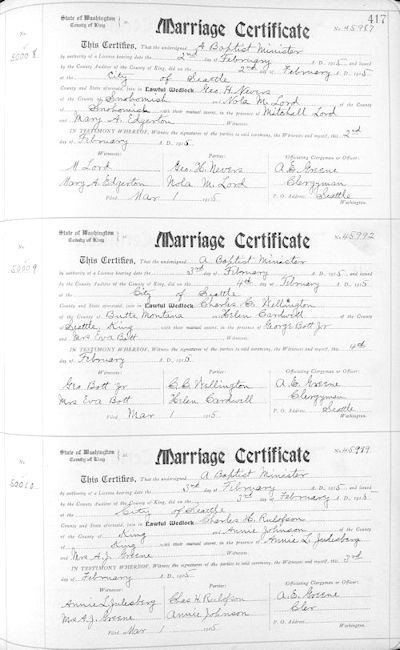 417
State of Washington
County of King
Marriage Certificate
No. 45987
50008
This Certifies, That the undersigned A Baptist Minister
by authority of a License bearing date the 2nd day of February A. D. 1915, and issued
by the County Auditor of the County of King, did on the 2nd day of February A. D. 1915
at the City of Seattle
County and State aforesaid, join in Lawful Wedlock Geo. H. Nevers
of the County of Snohomish and Nola M. Lord of the County
of Snohomish with their mutual assent, in the presence of Mitchell Lord
and Mary A. Edgerton Witnesses:
IN TESTIMONY WHEREOF, Witness the signatures of the parties to said ceremony, the witnesses and myself, this 2nd
day of February A. D. 1915
Witnesses: Parties: Officiating Clergyman or Officer:
M Lord Geo. H. Nevers A. E. Greene
Mary A. Edgerton Nola M. Lord Clergyman
Filed Mar 1 1915 P. O. Address Seattle
Washington.
State of Washington
County of King
Marriage Certificate
No. 45992
50009
This Certifies, That the undersigned A Baptist Minister
by authority of a License bearing date the 3rd day of February A. D. 1915, and issued
by the County Auditor of the County of King, did on the 4th day of February A. D. 1915
at the City of Seattle
County and State aforesaid, join in Lawful Wedlock Charles C. Wellington
of the County of Butte Montana and Helen Cardwell of the County
of Seattle, King with their mutual assent, in the presence of George Bott Jr
and Mrs Eva Bott Witnesses:
IN TESTIMONY WHEREOF, Witness the signatures of the parties to said ceremony, the witnesses and myself, this 4th
day of February A. D. 1915
Witnesses: Parties: Officiating Clergyman or Officer:
Geo Bott Jr C. C. Wellington A. E. Greene
Mrs Eva Bott Helen Cardwell Clergyman
Filed Mar 1 1915 P. O. Address Seattle
Washington.
State of Washington
County of King
Marriage Certificate
50010
This Certifies, That the undersigned A Baptist Minister
by authority of a License bearing date the 3rd day of February A. D. 1915, and issued
by the County Auditor of the County of King, did on the 3rd day of February A. D. 1915
at the City of Seattle
County and State aforesaid, join in Lawful Wedlock Charles H. Rulofson
of the County of King and Annie Johnson of the County
of King with their mutual assent, in the presence of Annie L. Julesberg
and Mrs A. J. Greene Witnesses:
IN TESTIMONY WHEREOF, Witness the signatures of the parties to said ceremony, the witnesses and myself, this 3rd
day of February A. D. 1915
Witnesses: Parties: Officiating Clergyman or Officer:
Annie L Julesberg Chas H. Rulofson A. E. Greene
Mrs A. J. Greene Annie Johnson Cler
Filed Mar 1 1915 P. O. Address
Washington.